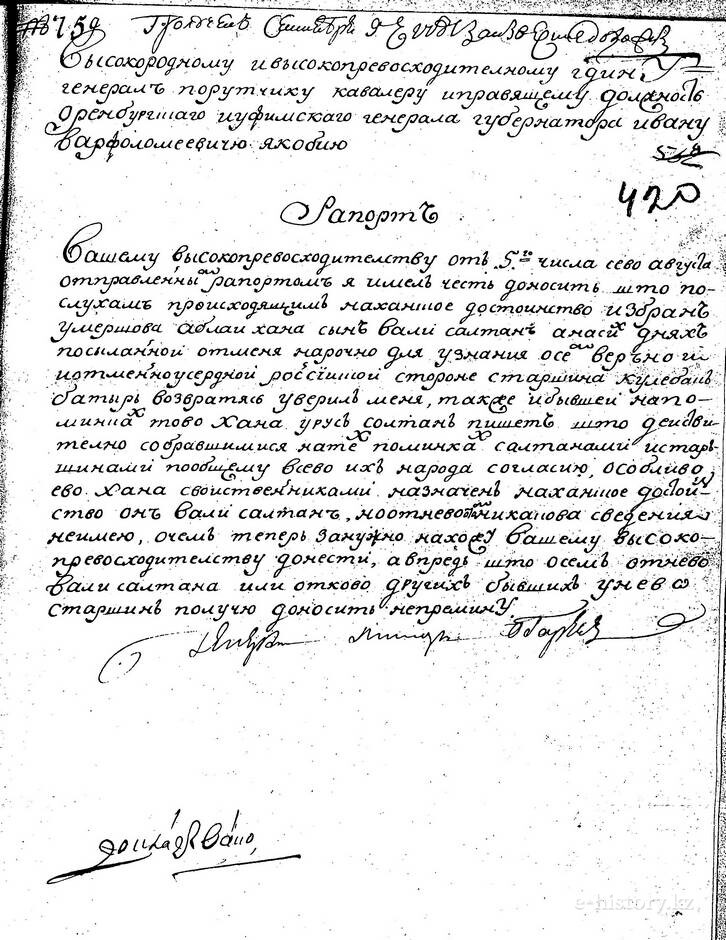 № 759 Получен Сентября 9
Высокородному и высокопревосходителному гдину
генералъ порутчику кавалеру иправящему должность
Оренбургшаго иуфимскаго генерала губернатора ивану
Варфоломеевичю якобию
420
Рапортъ
Вашему высокопревосходителству отъ 5го числа сево августа
отправленным рапортомъ я имелъ честь доносить што по-
слухамъ происходящимъ наханшое достоинство избранъ
умершова аблаи хана сынъ вали салтанъ анасих дняхъ
посыланной отменя нарочно для узнания осем верьной
иотменноусердной российшой стороне старшина кулебакъ
батырь возвратясь уверилъ меня, также ибывшей напо-
минках тово хана урусъ солтанъ пишетъ што действи-
телно собравшимися натех поминках салтанами истарь-
шинами пообщему всево ихъ народа согласию, особливо
ево хана свойственниками назначенъ наханшое достои-
ство онъ вали салтанъ, ноотнево никакова сведения
неимею, очемъ теперь занужно нахожу вашему высоко-
превосходителству донести, авпредь што осемъ отнево
вали салтана или отково другихъ бывшихъ унево
старшинъ получю доносить непремину
докладывано,
e-history.kz